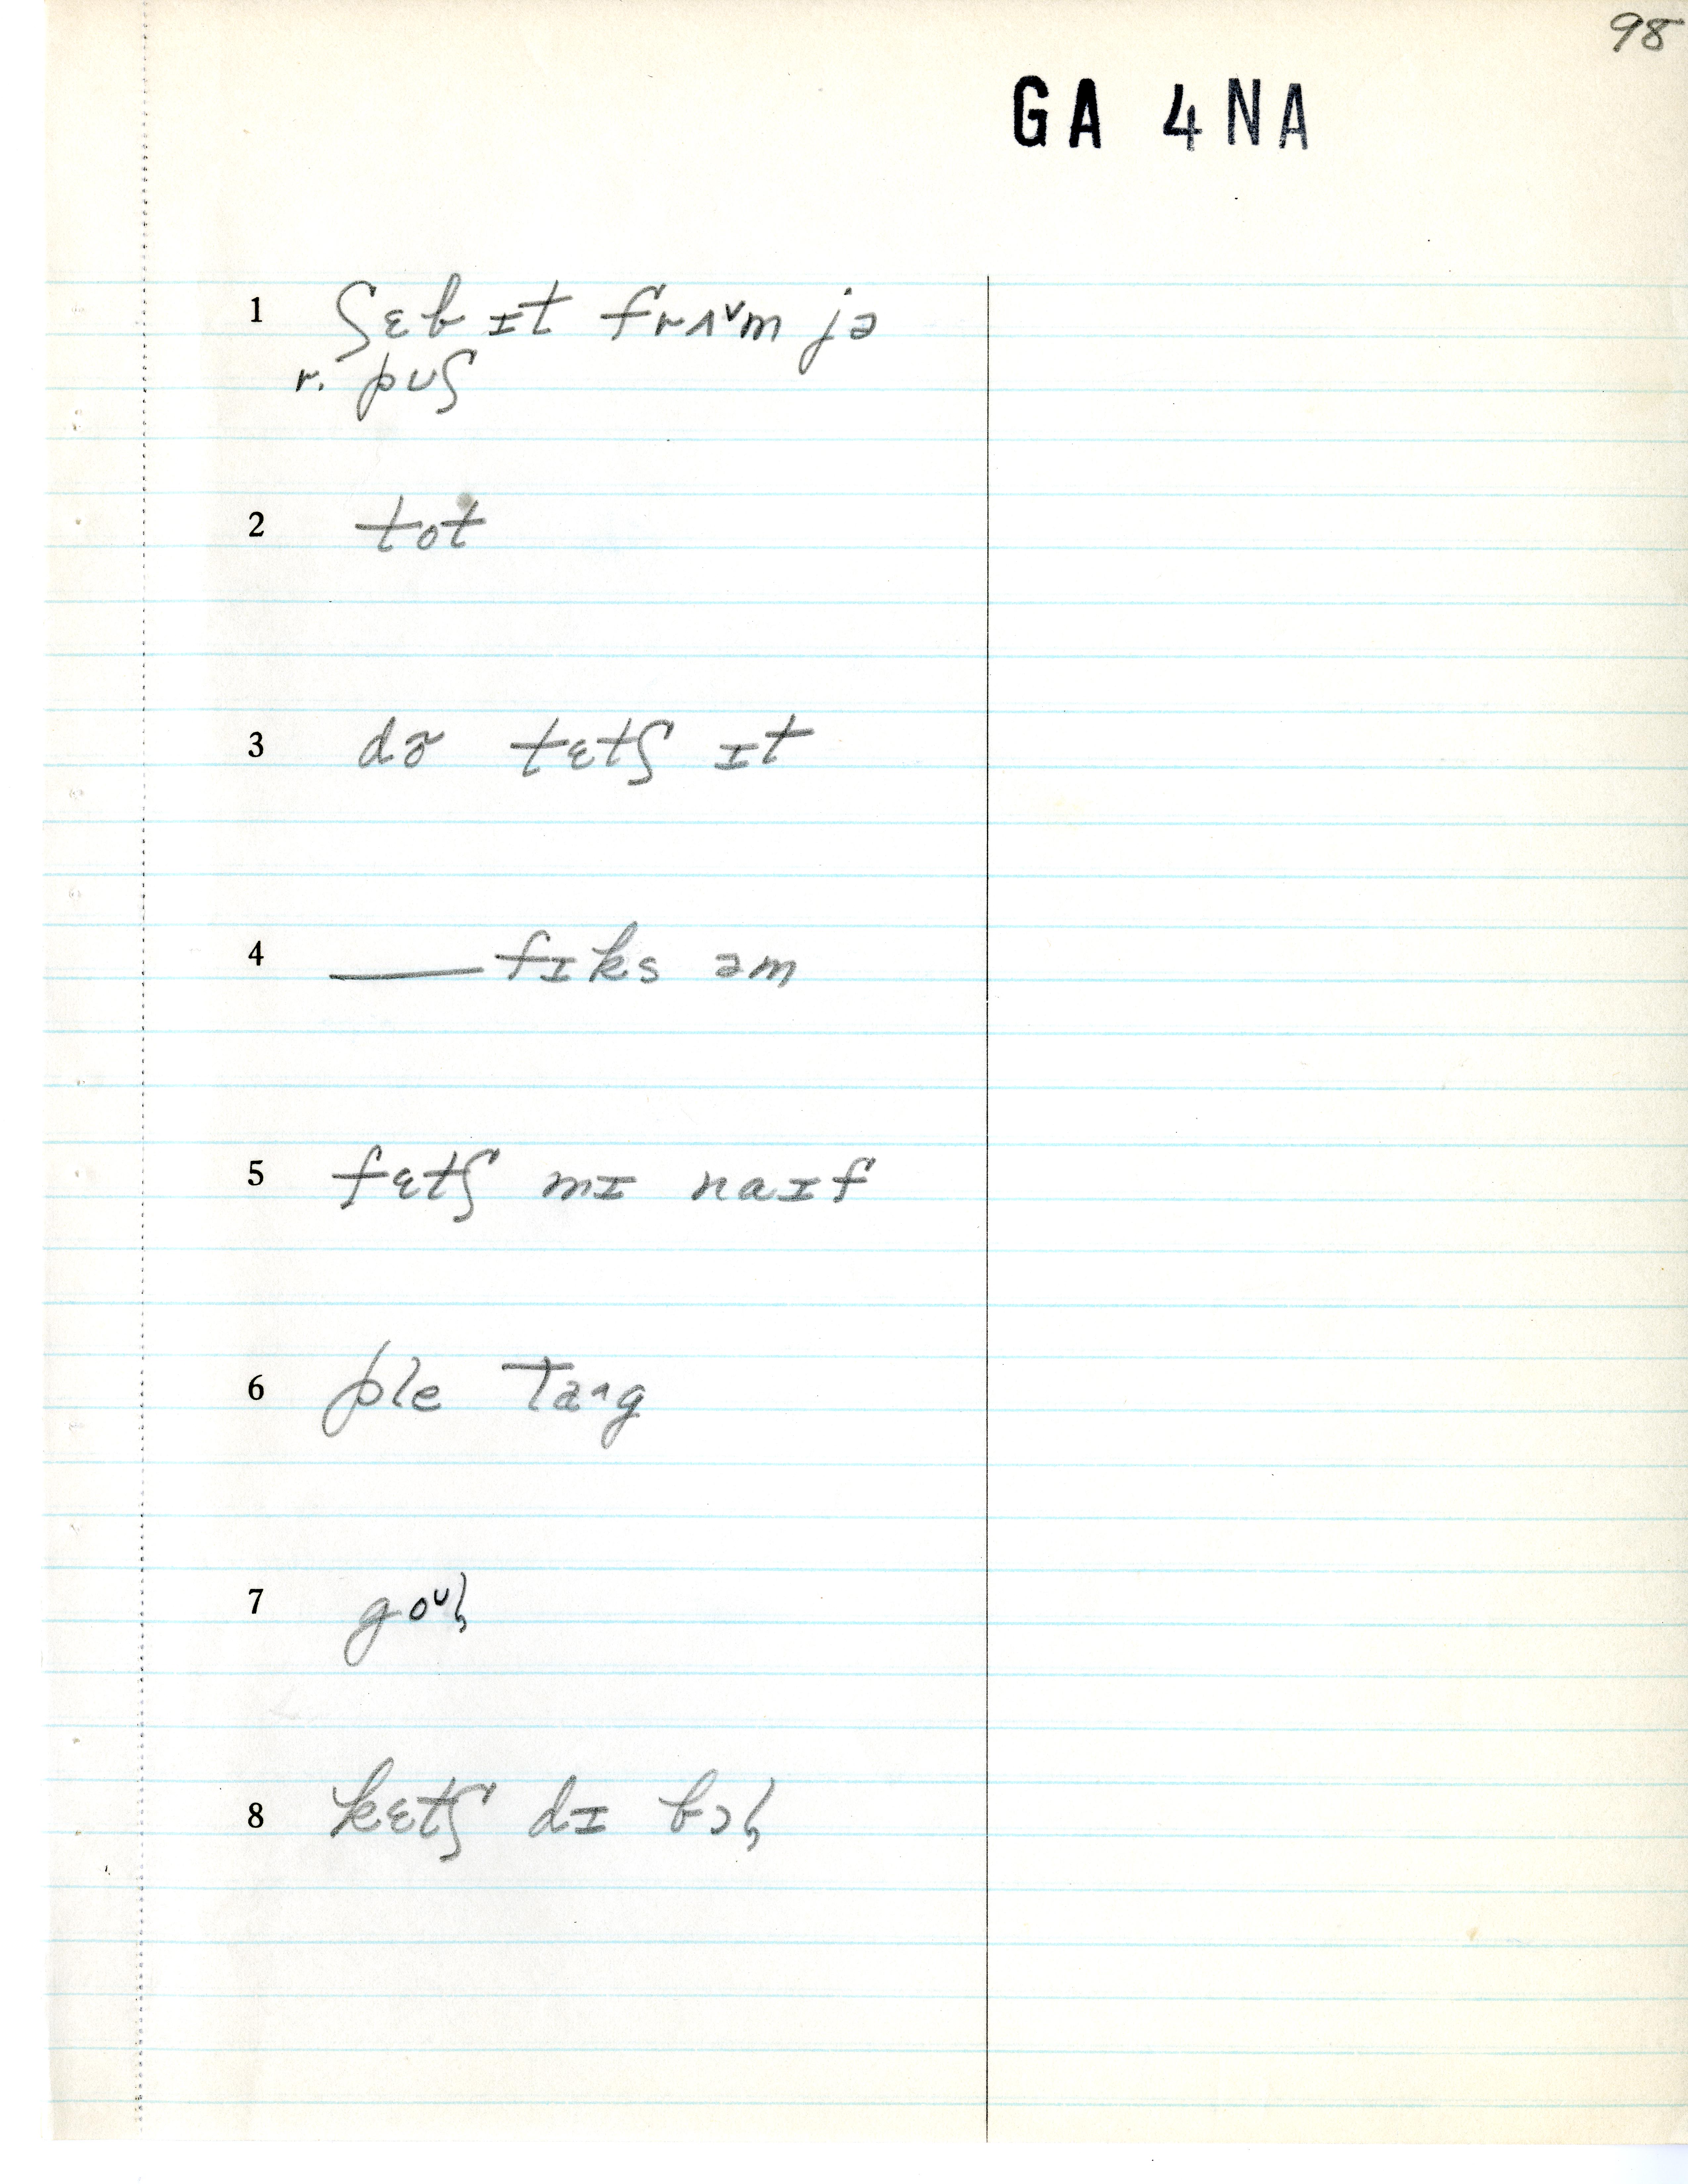 98
GA 4NA
1 ʃɛb ɪt frʌᵛm jə
r. pʊʃ
2 tot
3 dõ tɛtʃ ɪt
4 ___ fɪks əm
5 fɛtʃ mɪ naɪf
6 ple
7 goᶷɫ
8 kɛtʃ dɪ bɔɫ